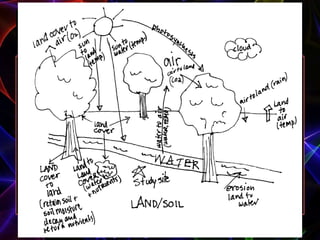 land cover to
air (O2)
sun
to
land
(temp)
sun to
water (temp)
photosynthesis
cloud
air
air to land
(CO2)
air to land (rain)
land
to
air
(temp)
land
cover
water to air
WATER
LAND
cover
to
land
(retain soil +
soil moisture
decay and
return nutrients)
land to
land
cover
(water
+ nutrients)
Study site
erosion
land to
water
LAND/SOIL